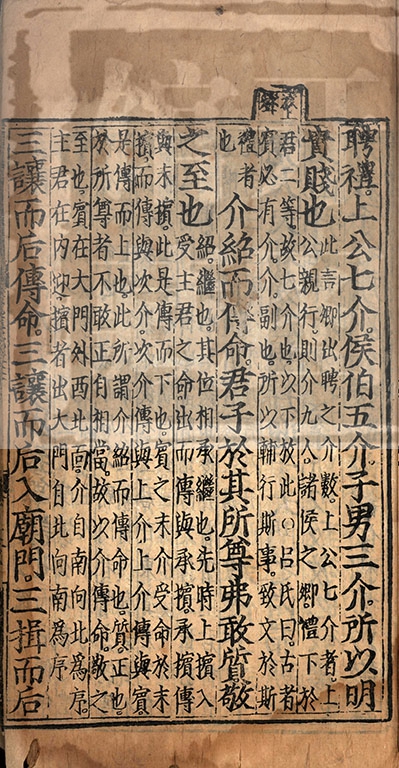 聘禮。上公七介。侯伯五介。子男三介。所以明
貴賤也
此言卿出聘之介數。上公七介者上
公親行。則介九人。諸侯之卿。禮下於
君二等。故七介也。以下放此○呂氏曰。古者
賓必有介。介副也。所以輔行斯事。致文於斯
禮者
也
介紹而傳命。君子於其所尊弗敢質敬
之至也
紹。繼也。其位相承繼也。先時上擯入
受主君之命。出而傳與承擯。承擯傳
與末擯。此是傳而下也。賓之末介受命於末
擯。而傳與次介。次介傳與上介。上介傳與賓。
是傳而上也。此所謂介紹而傳命也。質。正也。
於所尊者不敢正自相當。故以介傳命。敬之
至也。賓在大門外西北面。介自南向北爲序。
主君在內迎。擯者出大門自北向南爲序
三讓而后傳命。三讓而后入廟門。三揖而后